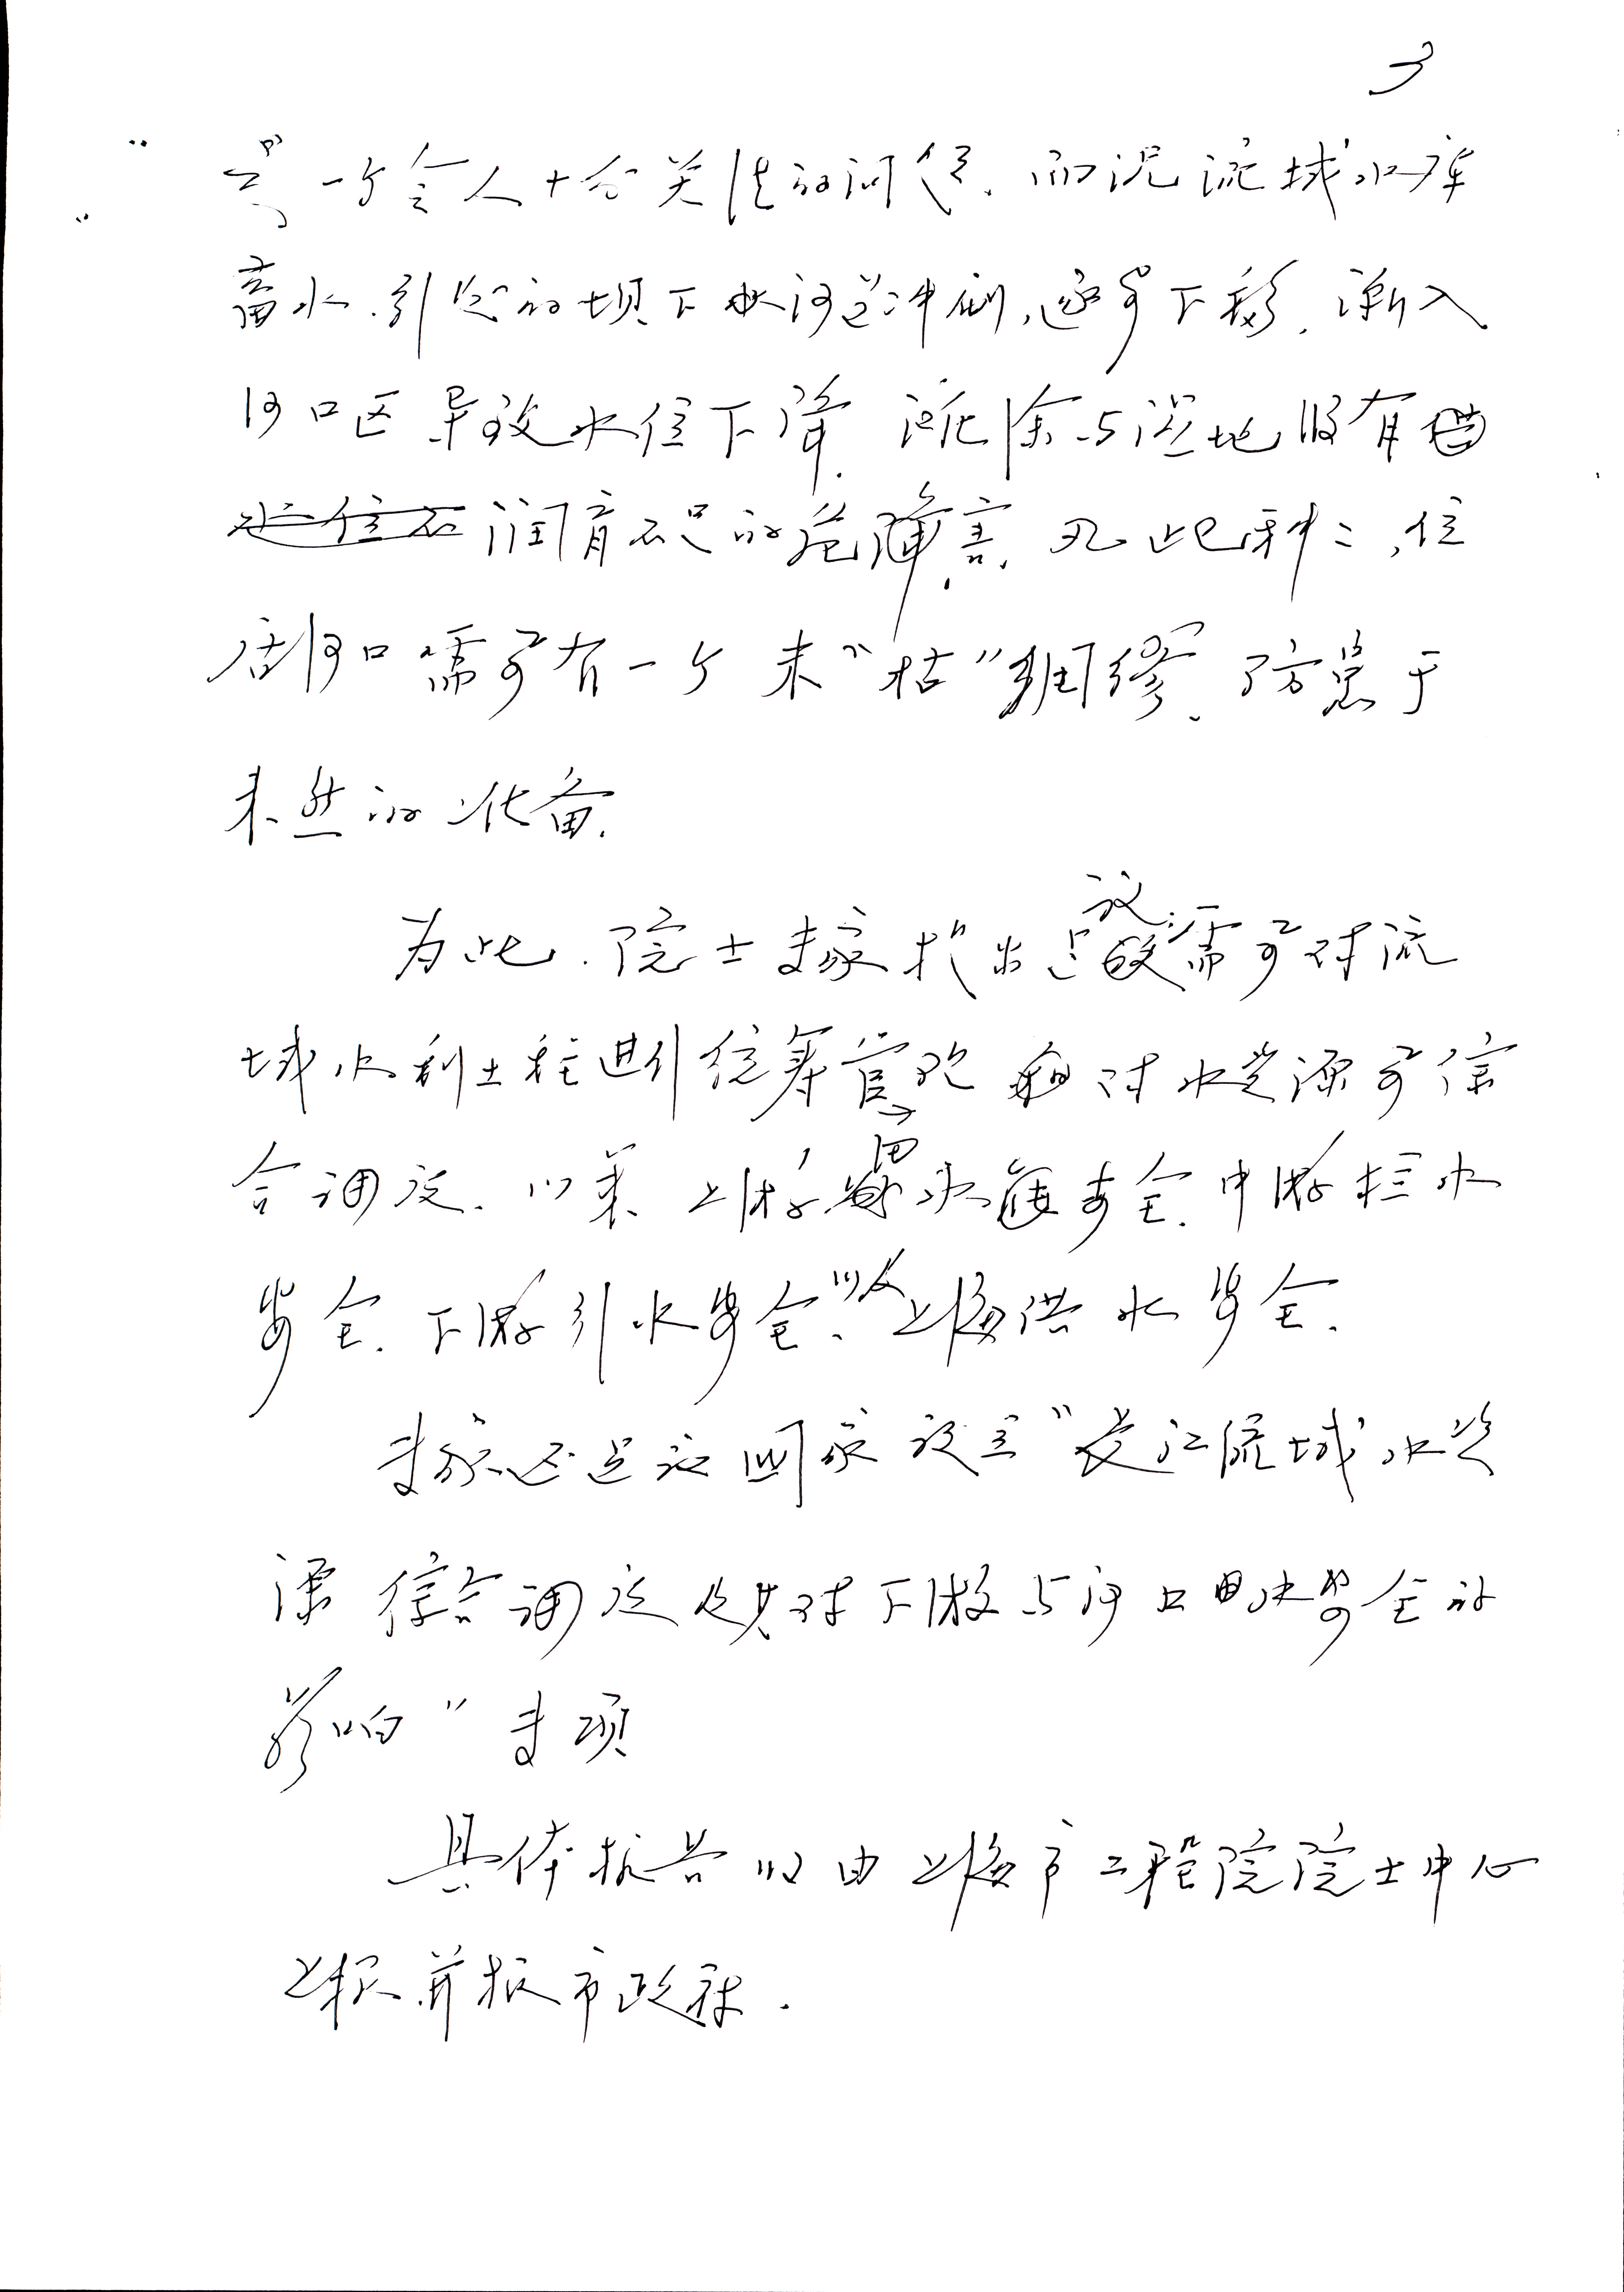 3
一个令人十分关注的问题.而况流域水库
蓄水.引起的坝下河道冲刷,逐步下移.渐入
河口区导致水位下降.滩涂与湿地没有
润育不足的危害.凡此种种,位
居河口需要有一个未“枯”绸缪、防患于
未然的准备.
为此.院士专家提出建议需要对流
域水利工程进行统筹管控和对水资源要综
合调度.以策上游用水安全.中游拦水
安全.下游引水安全、以及上海供水安全.
专家还建议国家设立“长江流域水资
源综合调度及其对下游与河口用水安全的
影响”专项
具体报告以由上海市工程院院士中心
上报并报市政府.